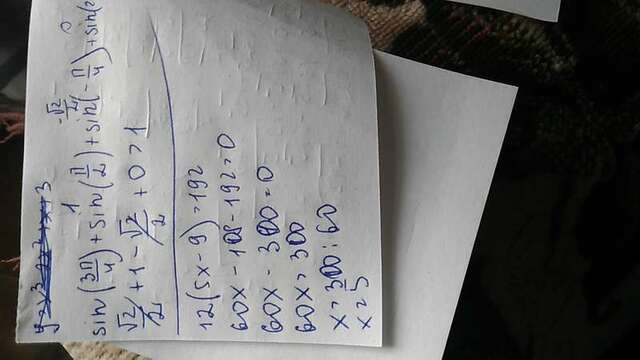 1 -√2/2 0
sin(3π/4) + sin(π/2) + sin(-π/4) + sin(2
√2/2 + 1 - √2/2 + 0 = 1
12(5x-9) = 192
60x - 108 - 192 = 0
60x - 300 = 0
60x = 300
x = 300 : 60
x = 5